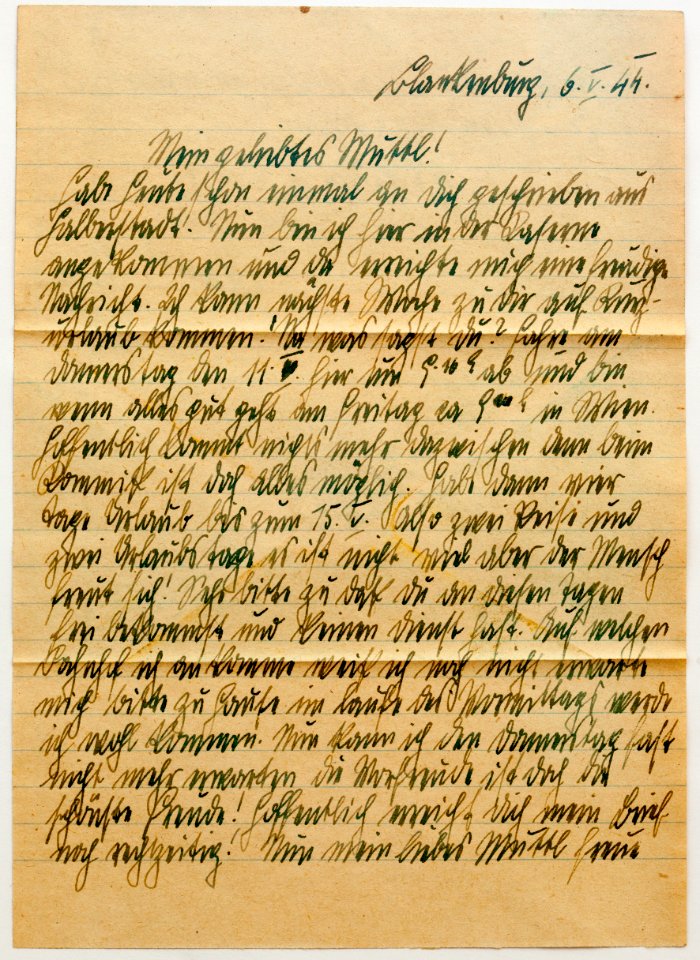 Blankenburg, 6.V.44.
Mein geliebtes Muttl!
Habe heute schon einmal an dich geschrieben aus
Halberstadt! Nun bin ich hier in der Kaserne
angekommen und da erreichte mich eine freudige
Nachricht. Ich kann nächste Woche zu dir auf Kurz-
urlaub kommen! Na was sagst du? Fahre am
Donnerstag den 11. V. hier um ab und bin
wenn alles gut geht am Freitag ca in Wien.
Hoffentlich kommt nichts mehr dazwischen denn beim
Kommiß ist doch alles möglich. Habe dann vier
Tage Urlaub bis zum 15. V. Also zwei Reise und
zwei Urlaubstage es ist nicht viel aber der Mensch
freut sich! Sehe bitte zu daß du an diesen Tagen
frei bekommst und keinen Dienst hast. Auf welchen
Bahnhof ich ankomme weiß ich noch nicht erwarte
mich bitte zu Hause im laufe des Vormittags werde
ich wohl kommen. Nun kann ich den Donnerstag fast
nicht mehr erwarten die Vorfreude ist doch die
schönste Freude! Hoffentlich erreicht dich mein Brief
noch rechtzeitig! Nun mein liebes Muttl freue